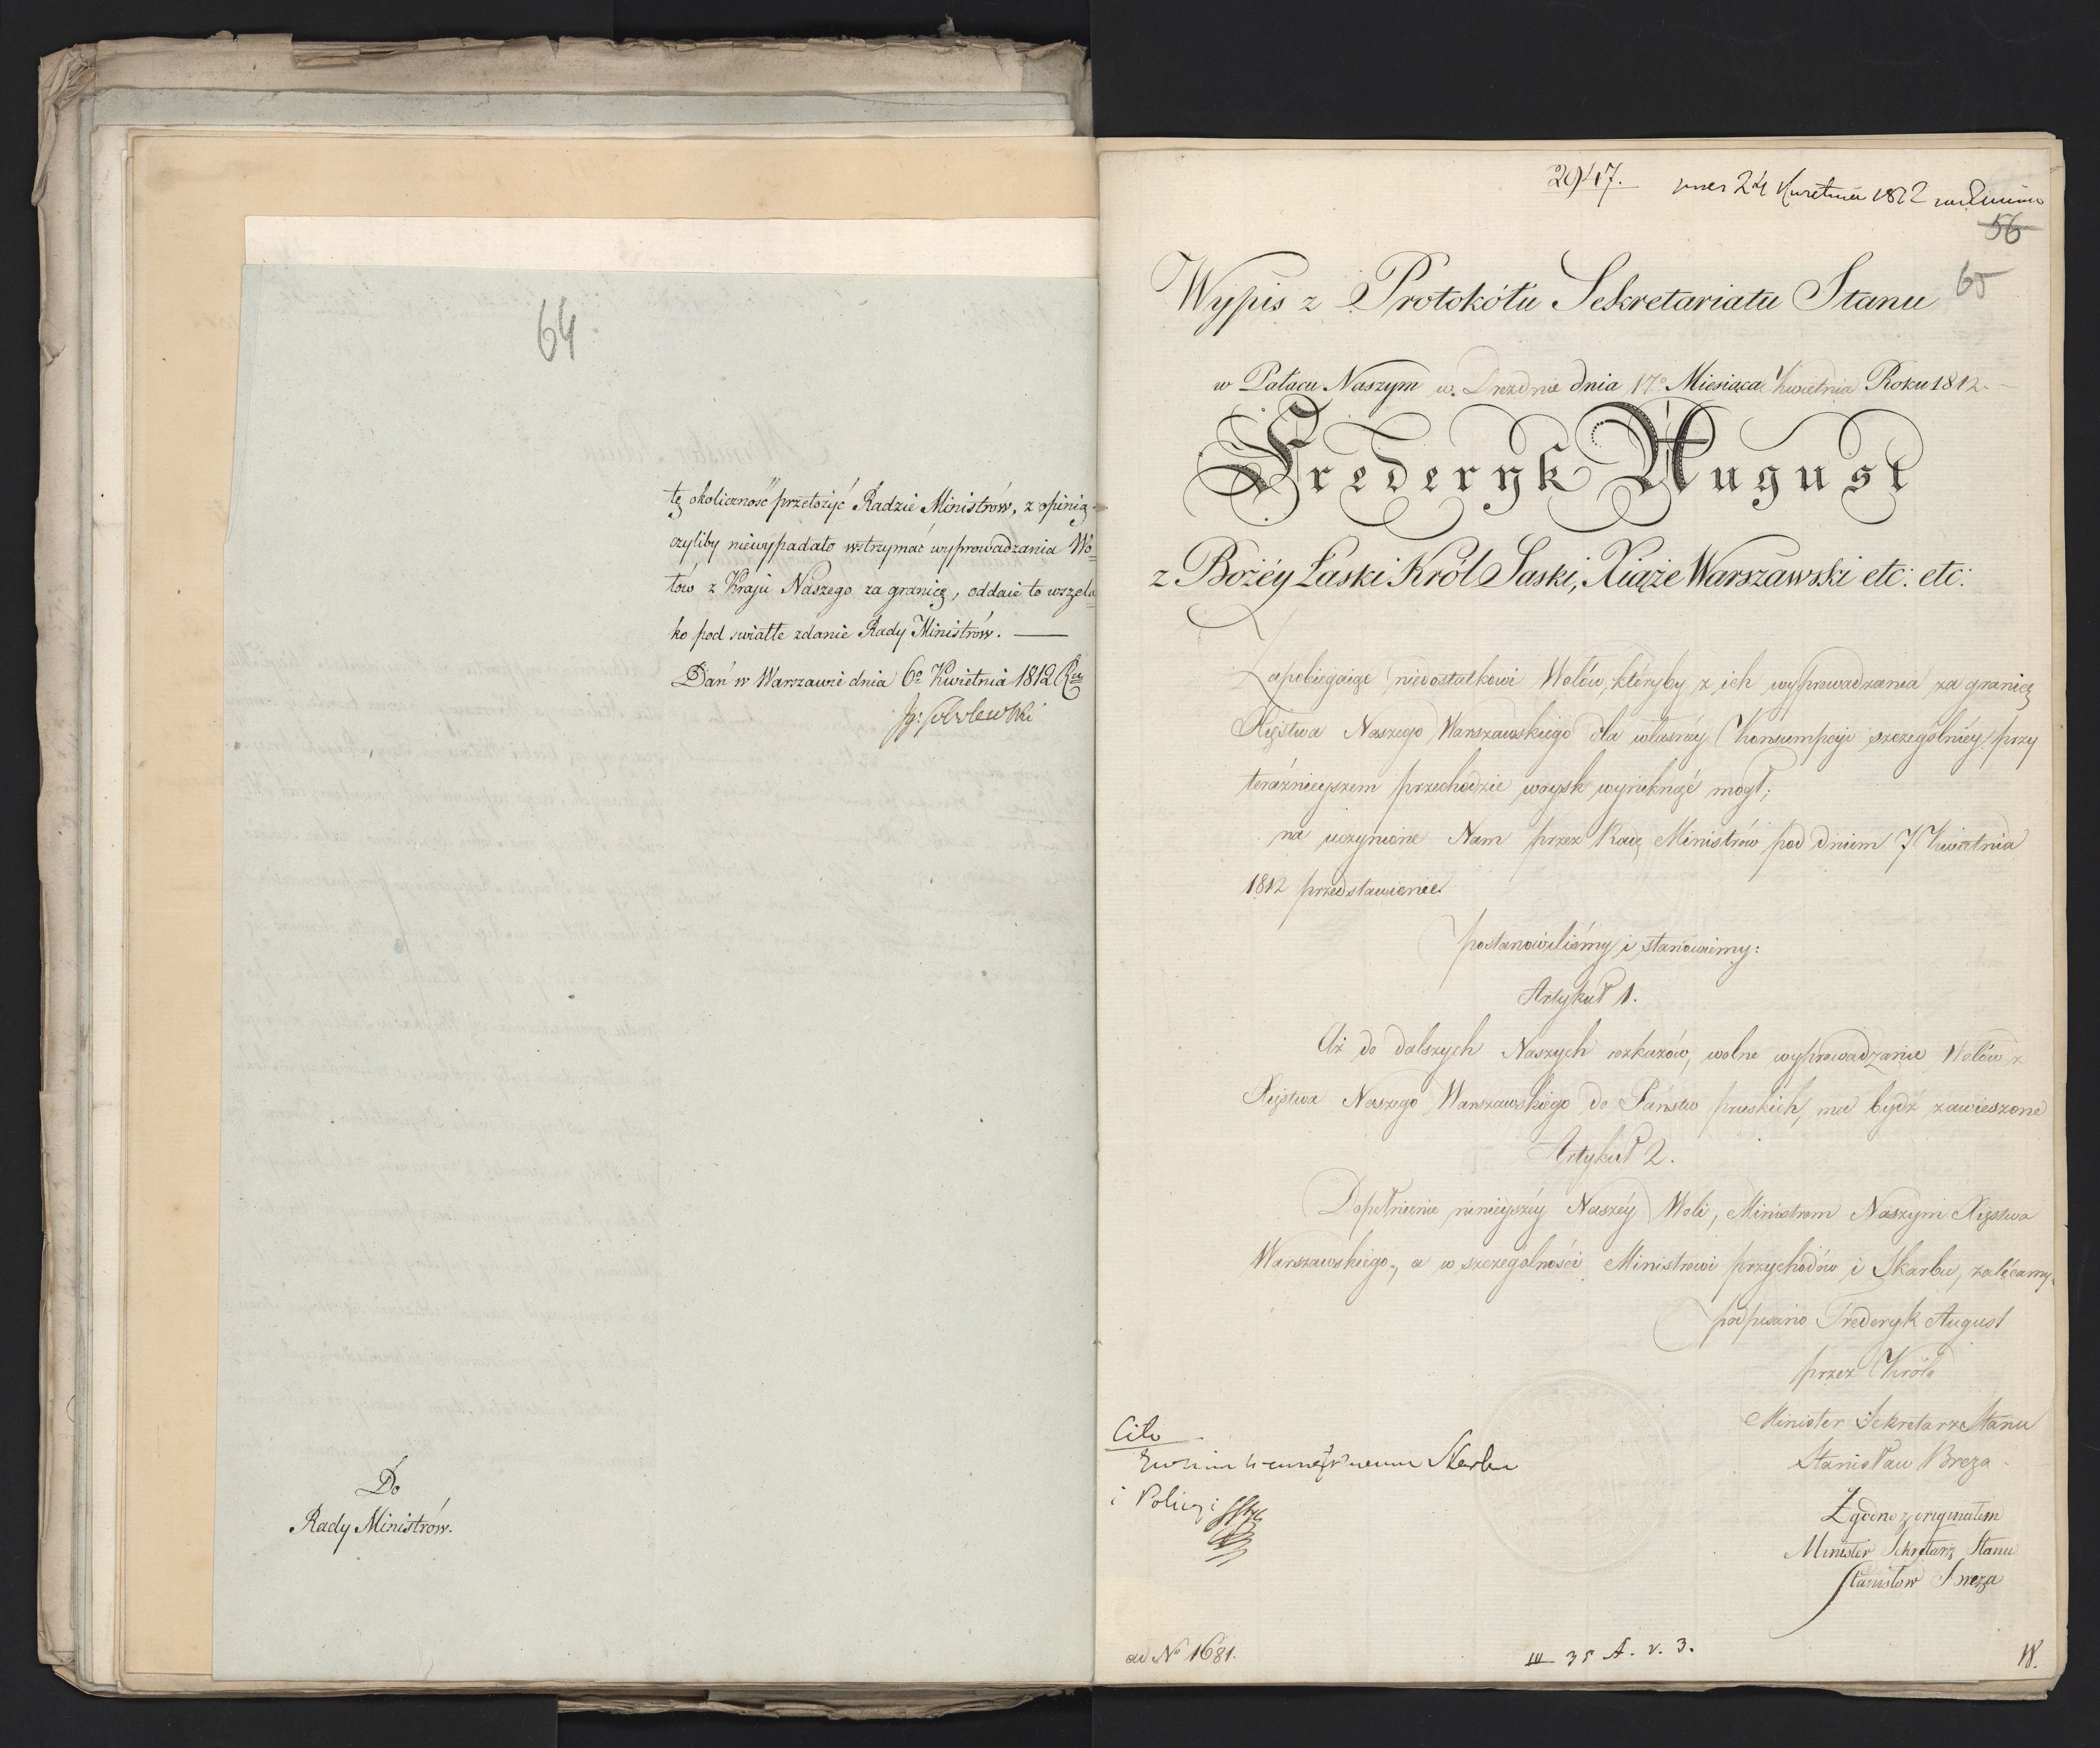 64.
tę okoliczność przełożyć Radzie Ministrów, z opinią
czyliby niewypadało wstrzymać wyprowadzania Wo=
łów z Kraju Naszego za granicę, oddaie to wszela=
ko pod swiatłe zdanie Rady Ministrów. —
Dań w Warszawie dnia 6º Kwietnia 1812 Ru
Sobolewski
Do
Rady Ministrów.
2947. 24 Kwietnia 1812
56
65
Wypis z Protokółu Sekretariatu Stanu
w Pałacu Naszym w Dreznie dnia 17º Miesiąca Kwietnia Roku 1812.
Frederyk August
z Bożéy Łaski Król Saski, Xiąże Warszawski etc: etc:
Zapobiegaiąc niedostatkowi Wołów, któryby z ich wyprowadzania za granicę
Xięstwa Naszego Warszawskiego dla własnéy Konsumpcyi szczególniéy przy
teraźnieyszem przechodzie woysk wyniknąć mógł;
na uczynione Nam przez Radę Ministrów pod dniem 7 Kwietnia
1812 przedstawienie
postanowiliśmy i stanowiemy:
Artykuł 1.
Aż do dalszych Naszych rozkazów, wolne wyprowadzanie Wołów z
Xięstwa Naszego Warszawskiego do Państw pruskich, ma bydź zawieszone
Artykuł 2.
Dopełnienie ninieyszéy Naszéy Woli, Ministrom Naszym Xięstwa
Warszawskiego, a w szczególności Ministrowi przychodów i Skarbu, zalécamy.
podpisano Frederyk August
przez Króla
Minister Sekretarz Stanu
Stanisław Breza
Zgodno z originałem
Minister Sekretarz Stanu
Stanisław Breza
Cito
Skarbu
i Policyi
ad Nº 1681.
III 35 A. v. 3.
18.